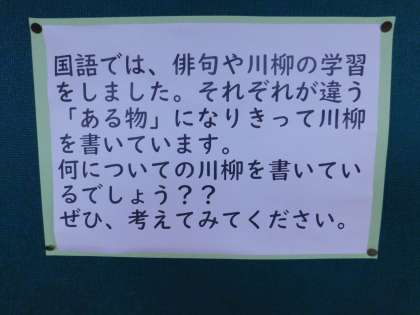 国語では、俳句や川柳の学習
をしました。それぞれが違う
「ある物」になりきって川柳
を書いています。
何についての川柳を書いてい
るでしょう？？
ぜひ、考えてみてください。